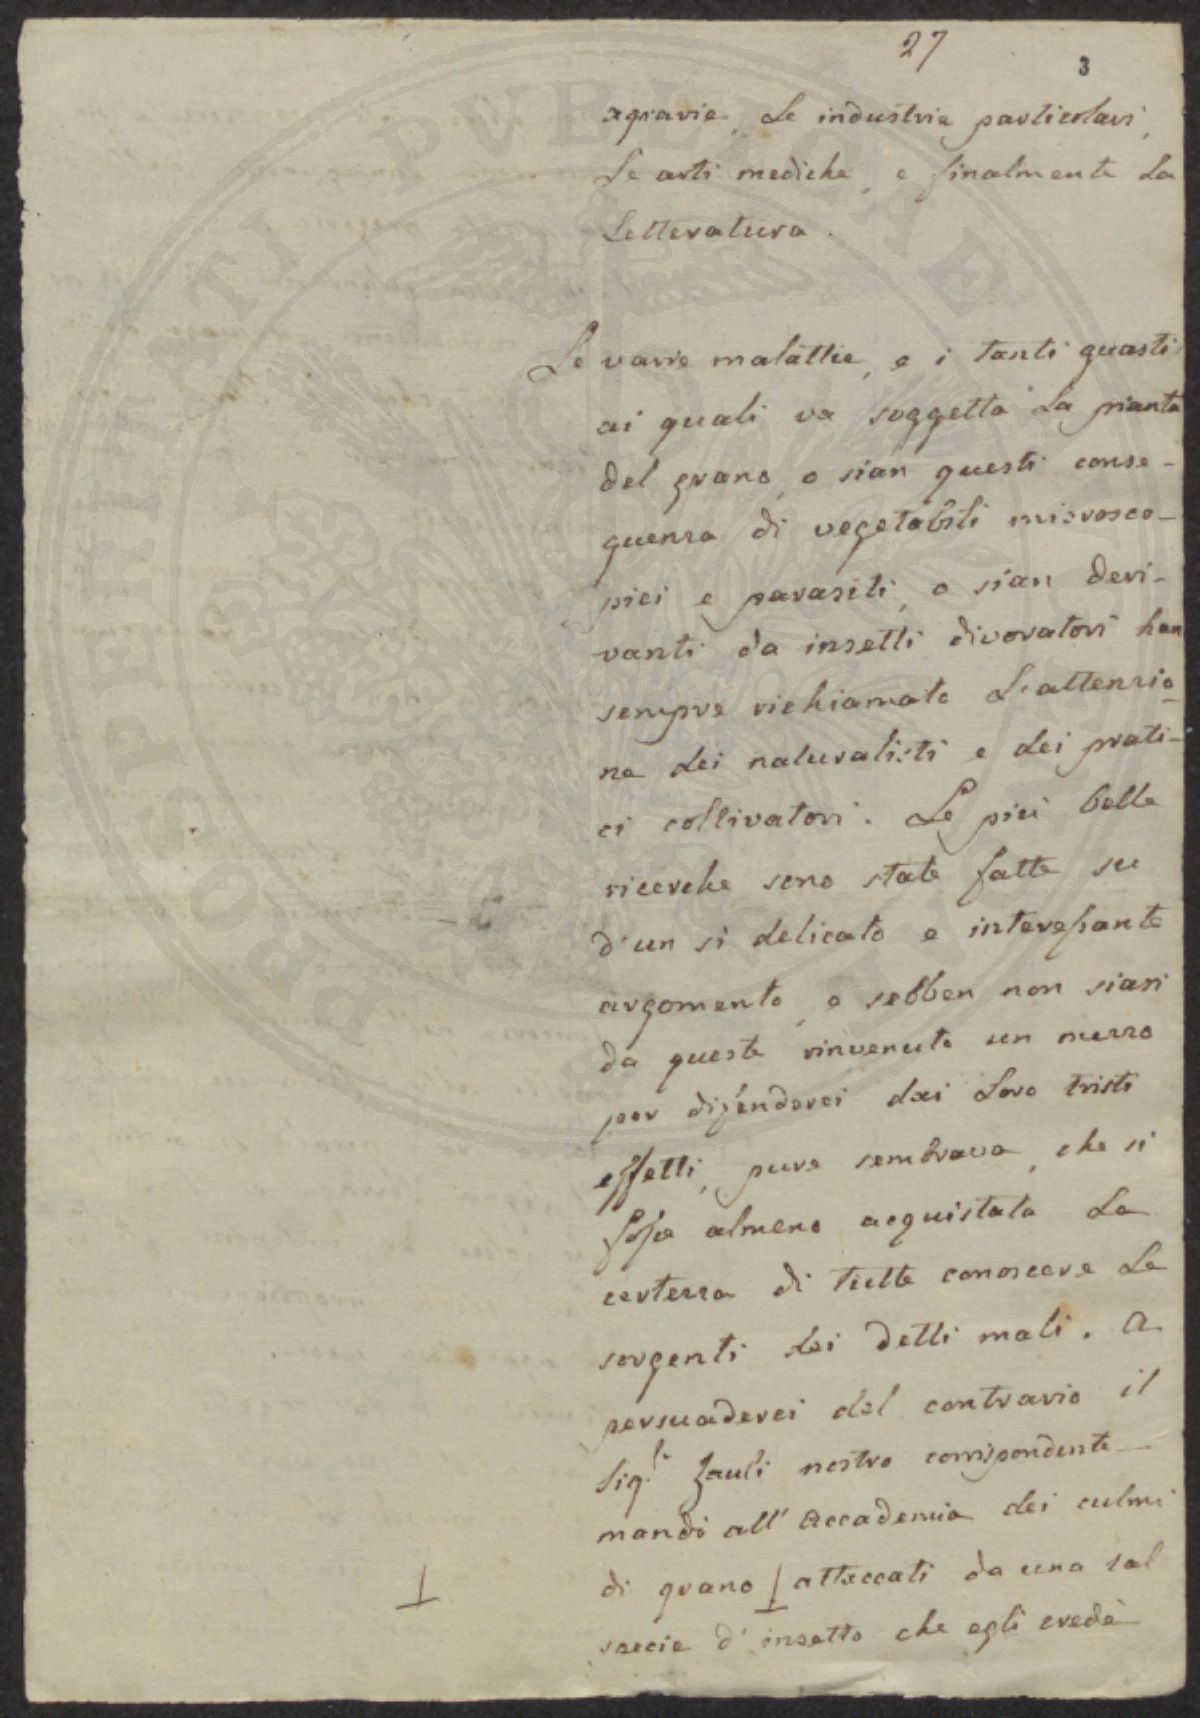 27
3
agrarie, Le industrie particolari,
Le arti mediche, e finalmente La
Letteratura.
Le varie malattie, e i tanti guasti
ai quali va soggetta La pianta
del grano, o sian questi conse-
guenza di vegetabili microsco-
pici e parasiti, o sian deri-
vanti da insetti divoratori han
sempre richiamato L'attenzio-
ne dei naturalisti e dei prati-
ci coltivatori. Le più belle
ricerche sono state fatte su
d'un sì delicato e interessante
argomento, e sebben non siasi
da queste rinvenuto un mezzo
per difenderci dai Loro tristi
effetti, pure sembrava, che si
fosse almeno acquistata La
certezza di tutte conoscere Le
sorgenti dei detti mali. A
persuaderci del contrario il
Sig.r Zauli nostro corrispondente
mandò all'Accademia dei culmi
di grano attaccati da una tal
specie d'insetto che egli credè
PROSPERITATI PVBLICAE